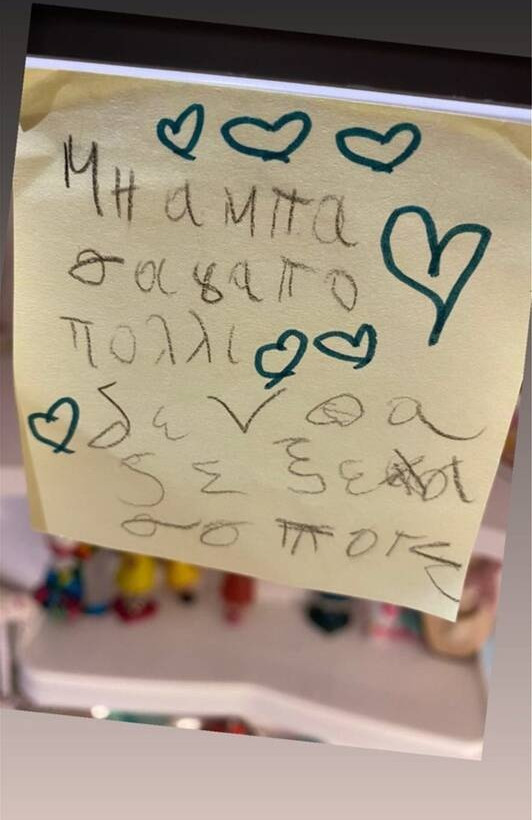 Μπαμπα
σαγαπο
πολλι
δεν θα
ςε ξεχα
σο ποτε